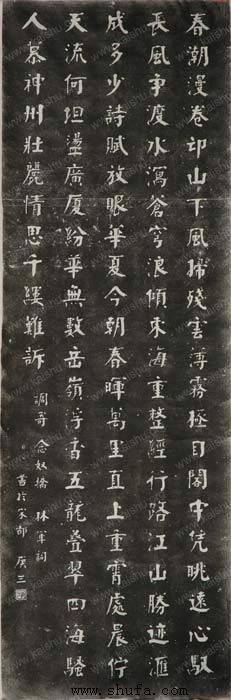 春潮漫卷邙山下風掃殘雲薄霧極目閣中凭眺遠心馭
長風爭渡水瀉蒼穹浪傾東海重整經行路江山勝迹滙
成多少詩賦放眼華夏今朝春暉萬里直上重霄處晨佇
天流何坦盪廣厦紛華無數岳嶺浮香五龍疊翠四海騷
人慕神州壯麗情思千縷難訴
調寄念奴嬌 林軍詞
書於京都
www.shufa.com